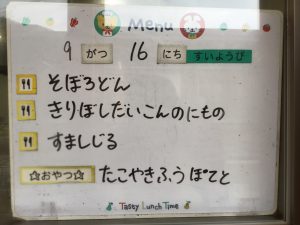 Menu
9 がつ 16 にち すいようび
そぼろどん
きりぼしだいこんのにもの
すましじる
☆おやつ☆ たこやきふうぽてと
Tasty Lunch Time